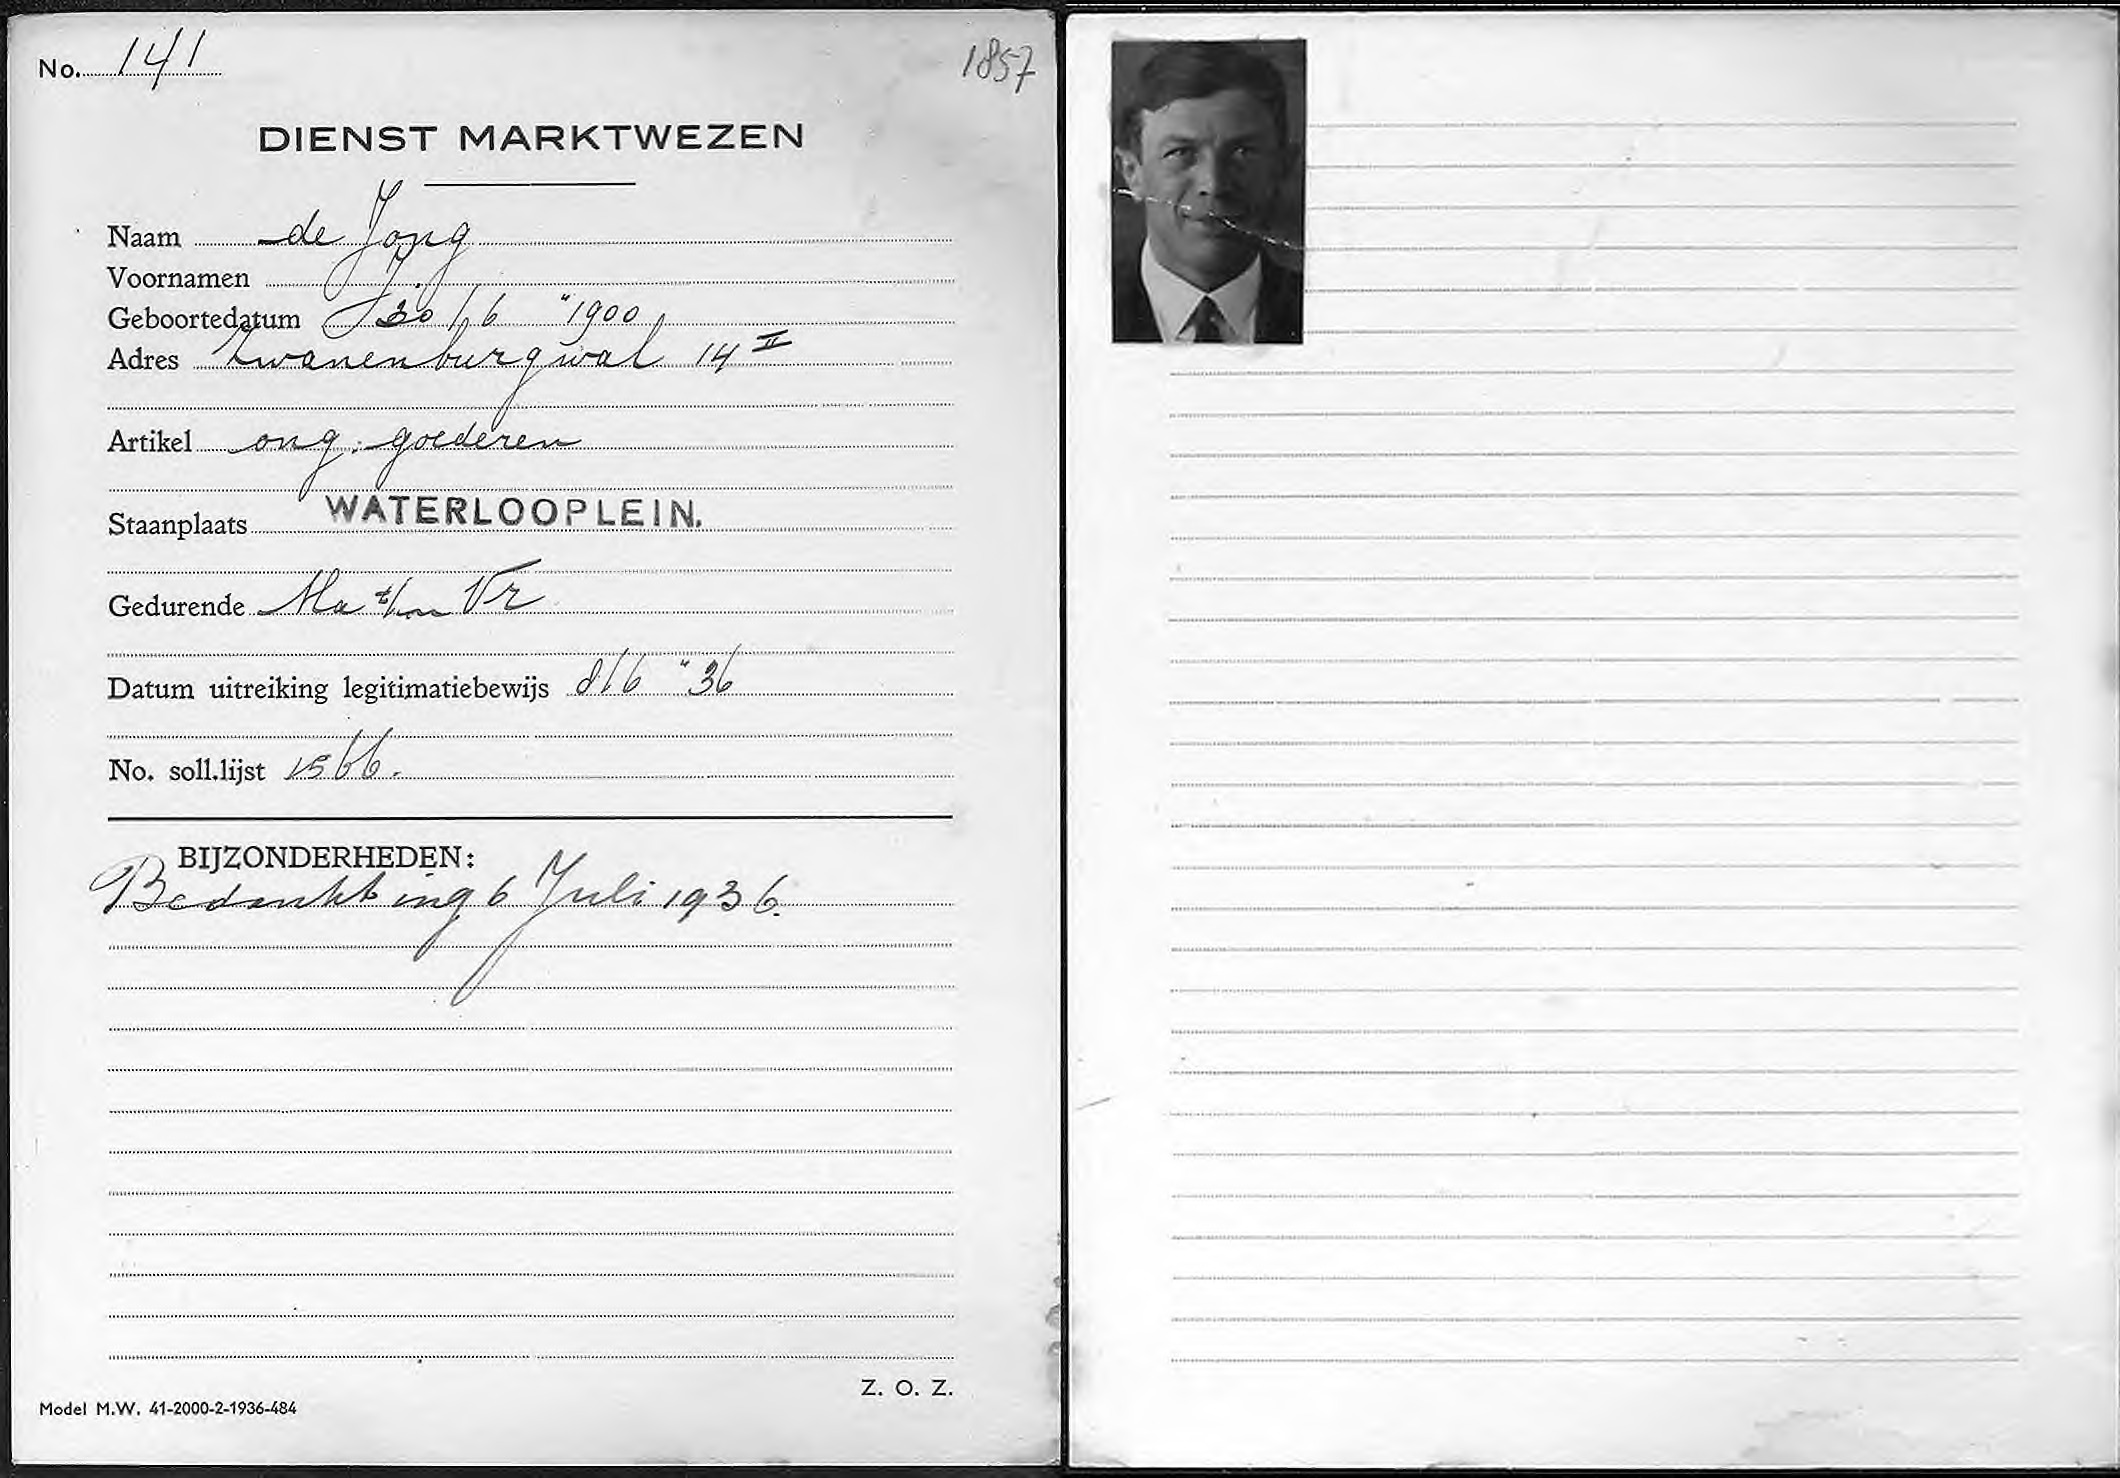 No. 141
1857
DIENST MARKTWEZEN
Naam de Jong
Voornamen J.
Geboortedatum 30/6 "1900
Adres Zwanenburgwal 14 II
Artikel ong. goederen
Staanplaats WATERLOOPLEIN.
Gedurende Ma t/m Vr
Datum uitreiking legitimatiebewijs 8/6 "36
No. soll.lijst 1566.
BIJZONDERHEDEN:
Bedankt ing 6 Juli 1936.
Z. O. Z.
Model M.W. 41-2000-2-1936-484